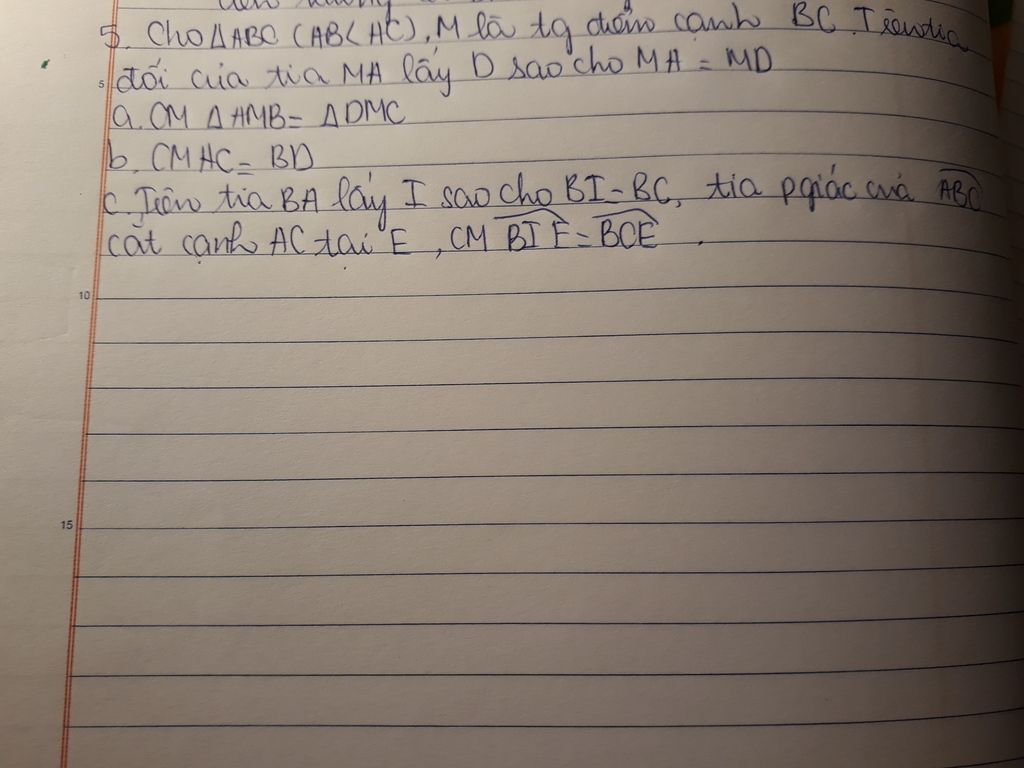 5. Cho ΔABC (AB<AC), M là tg điểm cạnh BC. Trên tia
5 đối của tia MA lấy D sao cho MA = MD
a. CM ΔAMB = ΔDMC
b. CM AC = BD
c. Trên tia BA lấy I sao cho BI = BC, tia pgiác của ABC
cắt cạnh AC tại E, CM BIE = BCE.
10
15